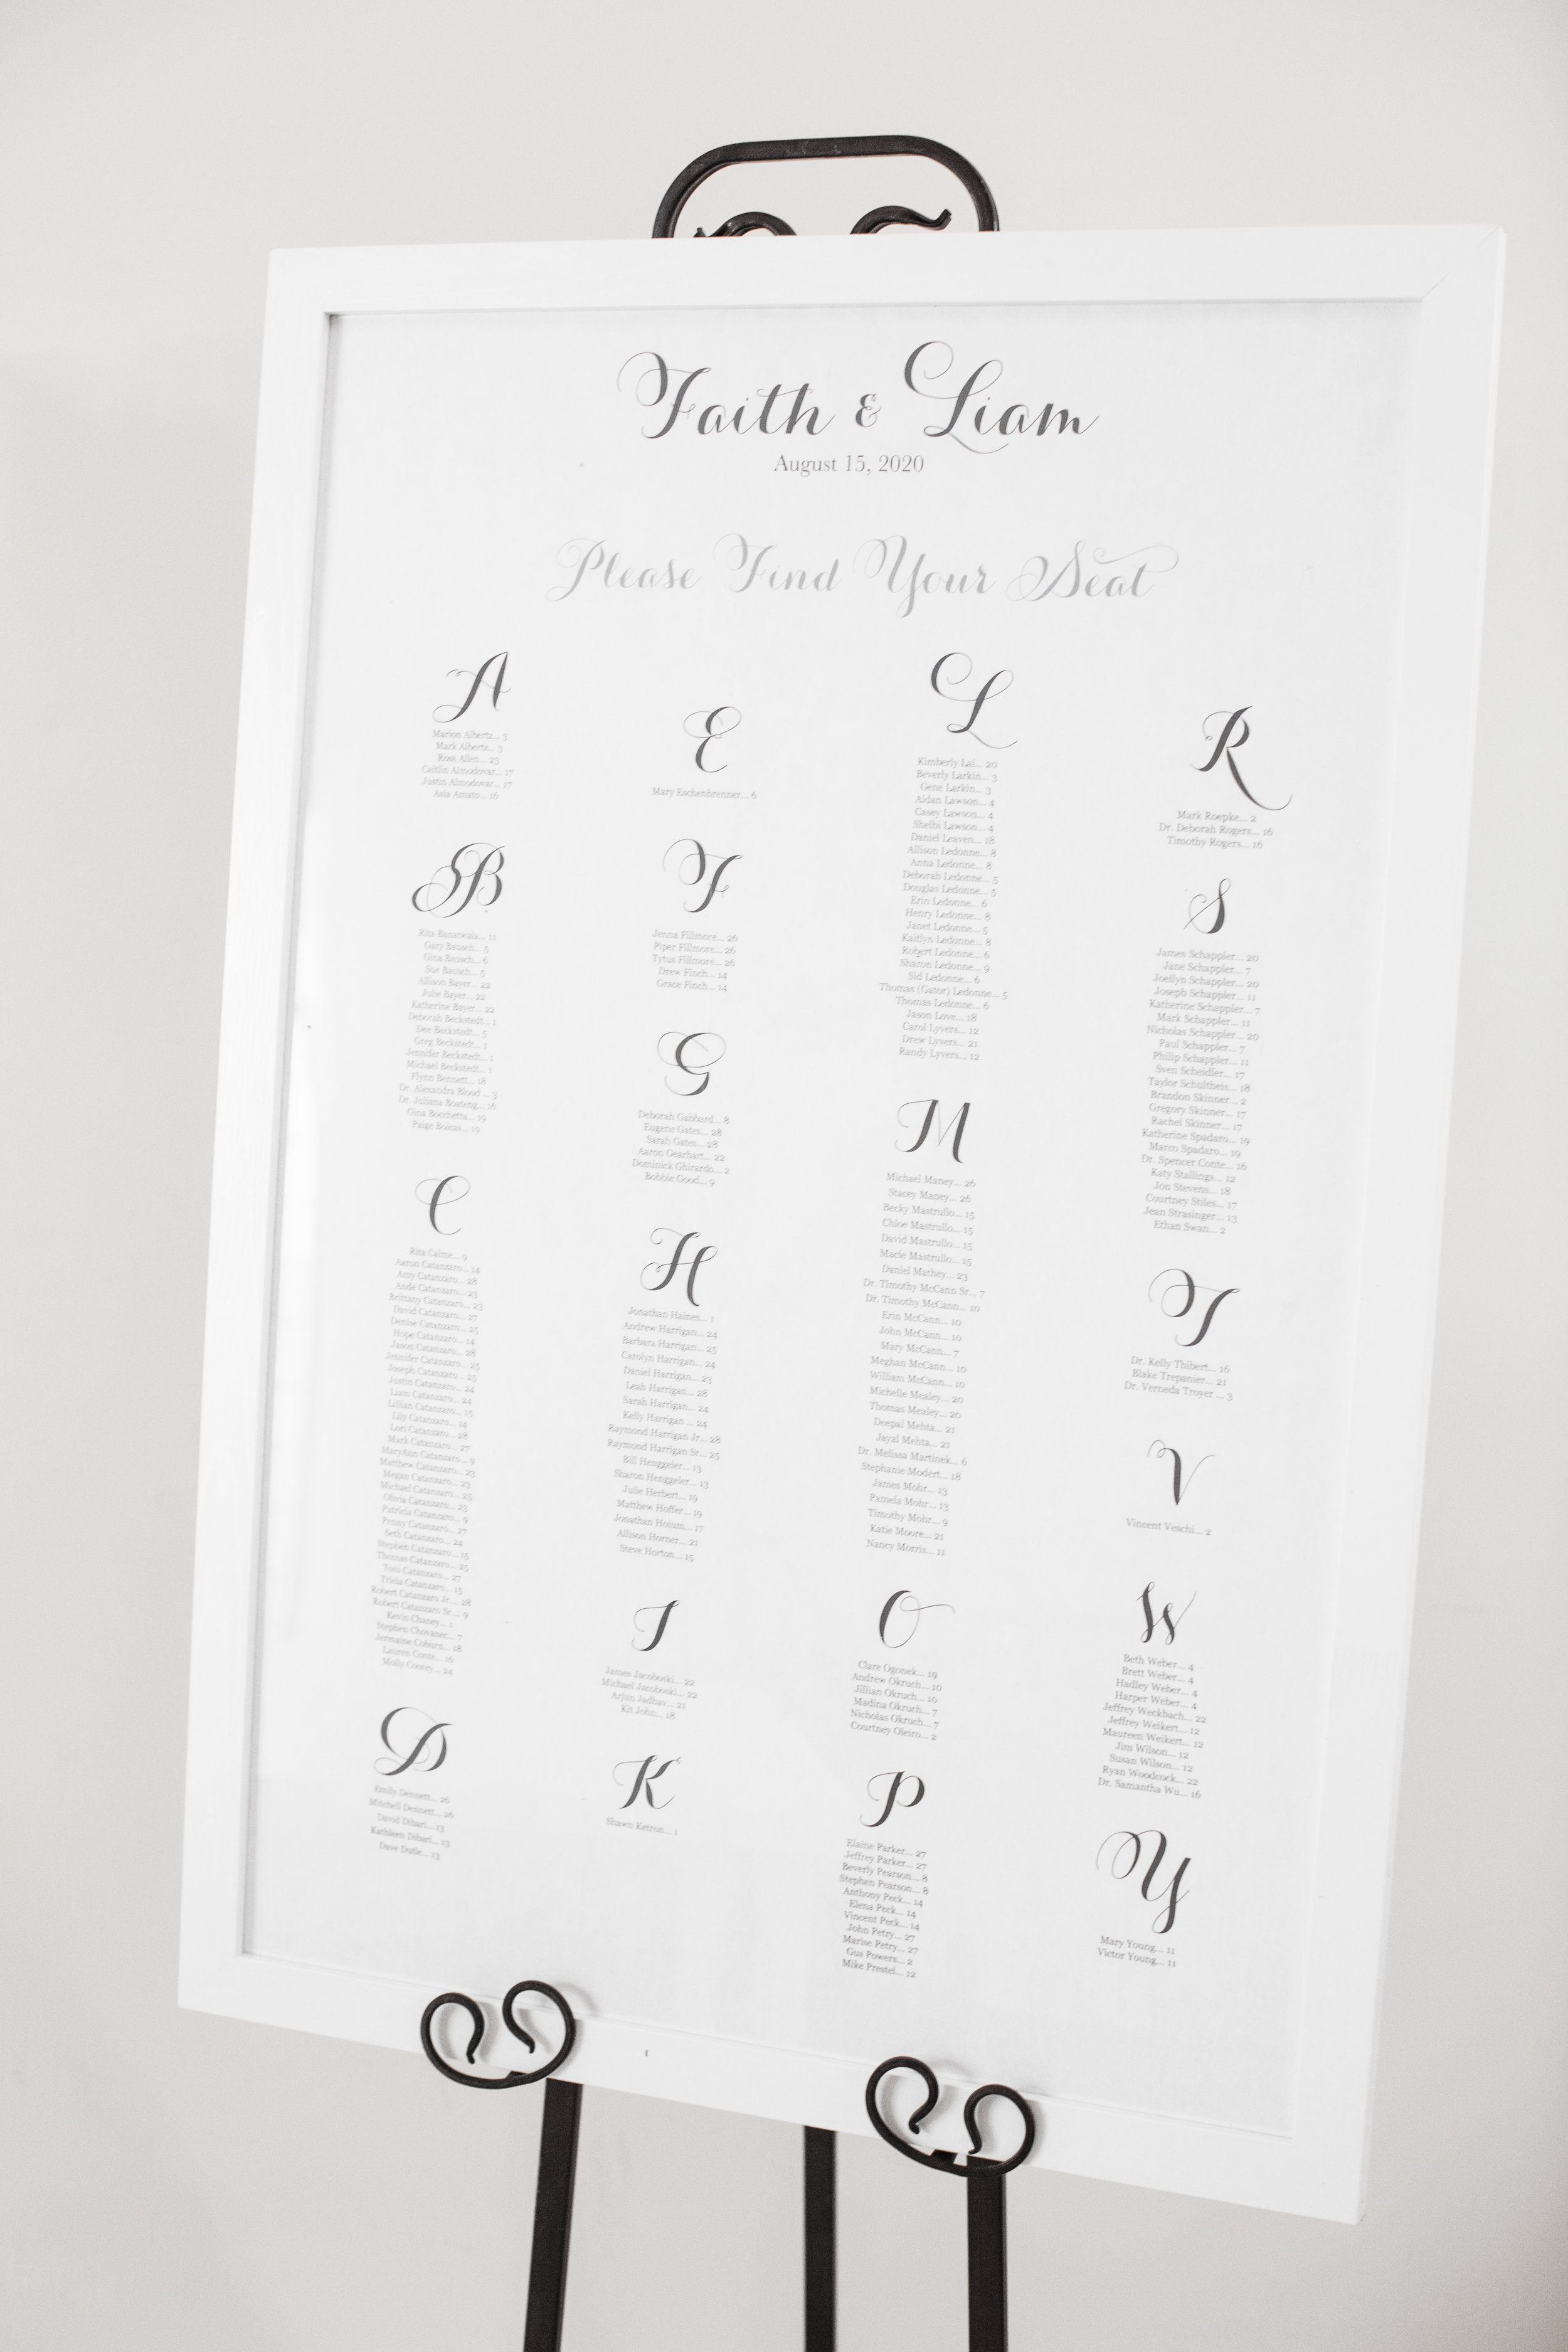 Faith & Liam
August 15, 2020
Please Find Your Seat
A
Marion Albertz... 3
Mark Albertz... 3
Ross Allen... 23
Caitlin Almodovar... 17
Justin Almodovar... 17
Asia Amato... 16
B
Rita Banatwala... 11
Gary Bausch... 5
Gina Bausch... 6
Sue Bausch... 5
Allison Bayer... 22
Julie Bayer... 22
Katherine Bayer... 22
Deborah Beckstedt... 1
Dee Beckstedt... 5
Greg Beckstedt... 1
Jennifer Beckstedt... 1
Michael Beckstedt... 1
Flynn Bennett... 18
Dr. Alexandra Blood ... 3
Dr. Juliana Boateng... 16
Gina Bocchetta... 19
Paige Bolcas... 19
C
Rita Caime... 9
Aaron Catanzaro... 14
Amy Catanzaro... 28
Ande Catanzaro... 23
Brittany Catanzaro... 23
David Catanzaro... 27
Denise Catanzaro... 25
Hope Catanzaro... 14
Jason Catanzaro... 28
Jennifer Catanzaro... 25
Joseph Catanzaro... 25
Justin Catanzaro... 24
Liam Catanzaro... 24
Lillian Catanzaro... 15
Lily Catanzaro... 14
Lori Catanzaro... 28
Mark Catanzaro... 27
MaryAnn Catanzaro... 9
Matthew Catanzaro... 23
Megan Catanzaro... 23
Michael Catanzaro... 25
Olivia Catanzaro... 23
Patricia Catanzaro... 9
Penny Catanzaro... 27
Seth Catanzaro... 24
Stephen Catanzaro... 15
Thomas Catanzaro... 25
Toni Catanzaro... 27
Tricia Catanzaro... 15
Robert Catanzaro Jr.... 28
Robert Catanzaro Sr.... 9
Kevin Chaney... 1
Stephen Chovanec... 7
Jermaine Coburn... 18
Lauren Conte... 16
Molly Cooney... 24
D
Emily Dennett... 26
Mitchell Dennett... 26
David Dibari... 13
Kathleen Dibari... 13
Dave Dutle... 13
E
Mary Eschenbrenner... 6
F
Jenna Fillmore... 26
Piper Fillmore... 26
Tytus Fillmore... 26
Drew Finch... 14
Grace Finch... 14
G
Deborah Gabbard... 8
Eugene Gates... 28
Sarah Gates... 28
Aaron Gearhart... 22
Dominick Ghirardo... 2
Bobbie Good... 9
H
Jonathan Haines... 1
Andrew Harrigan... 24
Barbara Harrigan... 25
Carolyn Harrigan... 24
Daniel Harrigan... 23
Leah Harrigan... 28
Sarah Harrigan... 24
Kelly Harrigan ... 24
Raymond Harrigan Jr... 28
Raymond Harrigan Sr... 25
Bill Henggeler... 13
Sharon Henggeler... 13
Julie Herbert... 19
Matthew Hoffer... 19
Jonathan Hoium... 17
Allison Horner... 21
Steve Horton... 15
J
James Jacoboski... 22
Michael Jacoboski... 22
Arjun Jadhav... 21
Kit John... 18
K
Shawn Ketron... 1
L
Kimberly Lai... 20
Beverly Larkin... 3
Gene Larkin... 3
Aidan Lawson... 4
Casey Lawson... 4
Shelbi Lawson... 4
Daniel Leaven... 18
Allison Ledonne... 8
Anna Ledonne... 8
Deborah Ledonne... 5
Douglas Ledonne... 5
Erin Ledonne... 6
Henry Ledonne... 8
Janet Ledonne... 5
Kaitlyn Ledonne... 8
Robert Ledonne... 6
Sharon Ledonne... 9
Sid Ledonne... 6
Thomas (Gator) Ledonne... 5
Thomas Ledonne... 6
Jason Love... 18
Carol Lyvers... 12
Drew Lyvers... 21
Randy Lyvers... 12
M
Michael Maney... 26
Stacey Maney... 26
Becky Mastrullo... 15
Chloe Mastrullo... 15
David Mastrullo... 15
Macie Mastrullo... 15
Daniel Mathey... 23
Dr. Timothy McCann Sr... 7
Dr. Timothy McCann... 10
Erin McCann... 10
John McCann... 10
Mary McCann... 7
Meghan McCann... 10
William McCann... 10
Michelle Mealey... 20
Thomas Mealey... 20
Deepal Mehta... 21
Jayal Mehta... 21
Dr. Melissa Martinek... 6
Stephanie Modert... 18
James Mohr... 13
Pamela Mohr... 13
Timothy Mohr... 9
Katie Moore... 21
Nancy Morris... 11
O
Clare Ogonek... 19
Andrew Okruch... 10
Jillian Okruch... 10
Madina Okruch... 7
Nicholas Okruch... 7
Courtney Oleiro... 2
P
Elaine Parker... 27
Jeffrey Parker... 27
Beverly Pearson... 8
Stephen Pearson... 8
Anthony Peck... 14
Elena Peck... 14
Vincent Peck... 14
John Petry... 27
Marise Petry... 27
Gus Powers... 2
Mike Prestel... 12
R
Mark Roepke... 2
Dr. Deborah Rogers... 16
Timothy Rogers... 16
S
James Schappler... 20
Jane Schappler... 7
Joellyn Schappler... 20
Joseph Schappler... 11
Katherine Schappler... 7
Mark Schappler... 11
Nicholas Schappler... 20
Paul Schappler... 7
Philip Schappler... 11
Sven Scheidler... 17
Taylor Schultheis... 18
Brandon Skinner... 2
Gregory Skinner... 17
Rachel Skinner... 17
Katherine Spadaro... 19
Marco Spadaro... 19
Dr. Spencer Conte... 16
Katy Stallings... 12
Jon Stevens... 18
Courtney Stiles... 17
Jean Strasinger... 13
Ethan Swan... 2
T
Dr. Kelly Thibert... 16
Blake Trepanier... 21
Dr. Verneda Troyer ... 3
V
Vincent Veschi... 2
W
Beth Weber... 4
Brett Weber... 4
Hadley Weber... 4
Harper Weber... 4
Jeffrey Weckbach... 22
Jeffrey Weikert... 12
Maureen Weikert... 12
Jim Wilson... 12
Susan Wilson... 12
Ryan Woodcock... 22
Dr. Samantha Wu... 16
Y
Mary Young... 11
Victor Young... 11